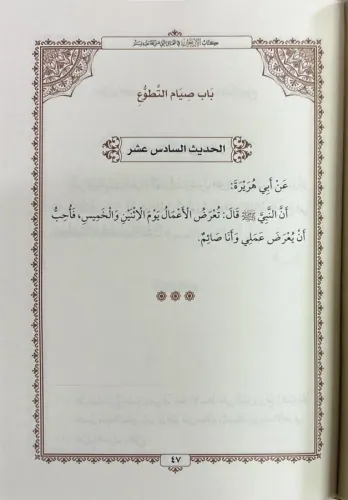 باب صيام التطوُّع
الحديث السادس عشر
عَنْ أَبِي هُرَيْرَةَ:
أَنَّ النَّبِيَّ ﷺ قَالَ: تُعْرَضُ الْأَعْمَالُ يَوْمَ الِاثْنَيْنِ وَالْخَمِيسِ، فَأُحِبُّ
أَنْ يُعْرَضَ عَمَلِي وَأَنَا صَائِمٌ.
٤٧